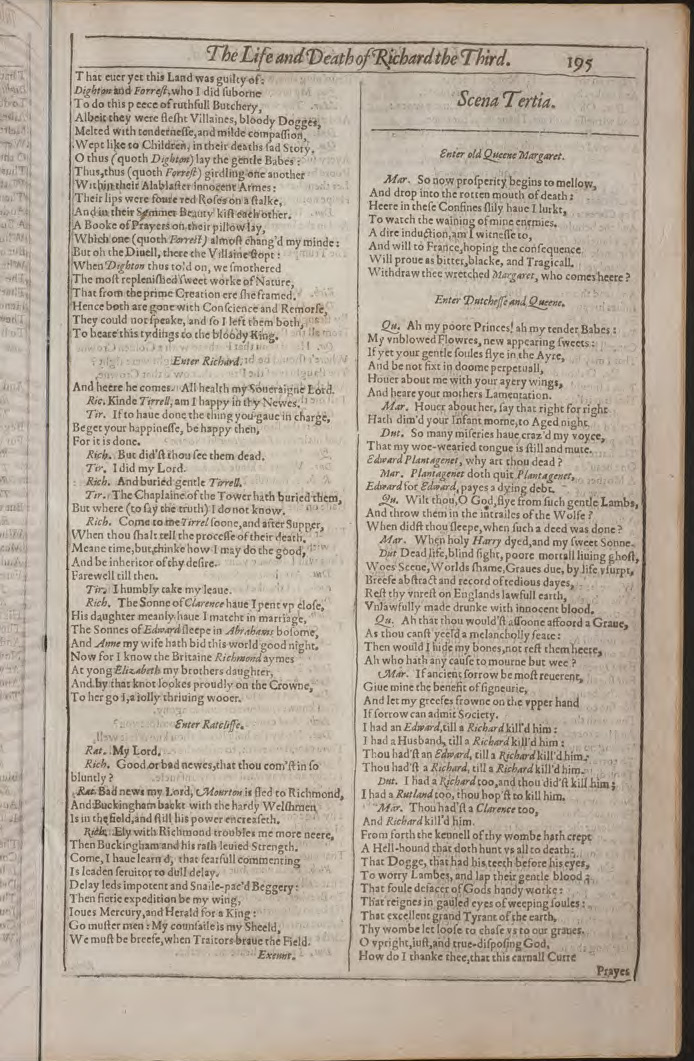 The Life and Death of Richard the Third. 195
That euer yet this Land was guilty of:
Dighton and Forrest, who I did suborne
To do this peece of ruthfull Butchery,
Albeit they were flesht Villaines, bloody Dogges,
Melted with tendernesse, and milde compassion,
Wept like to Children, in their deaths sad Story.
O thus (quoth Dighton) lay the gentle Babes:
Thus, thus (quoth Forrest) girdling one another
Within their Alablaster innocent Armes:
Their lips were foure red Roses on a stalke,
And in their Summer Beauty kist each other.
A Booke of Prayers on their pillow lay,
Which one (quoth Forrest) almost chang'd my minde:
But oh the Diuell, there the Villaine stopt:
When Dighton thus told on, we smothered
The most replenished sweet worke of Nature,
That from the prime Creation ere she framed.
Hence both are gone with Conscience and Remorse,
They could not speake, and so I left them both,
To beare this tydings to the bloody King.
Enter Richard.
And heere he comes. All health my Soueraigne Lord.
Ric. Kinde Tirrell, am I happy in thy Newes.
Tir. If to haue done the thing you gaue in charge,
Beget your happinesse, be happy then,
For it is done.
Rich. But did'st thou see them dead.
Tir. I did my Lord.
Rich. And buried gentle Tirrell.
Tir. The Chaplaine of the Tower hath buried them,
But where (to say the truth) I do not know.
Rich. Come to me Tirrel soone, and after Supper,
When thou shalt tell the processe of their death.
Meane time, but thinke how I may do the good,
And be inheritor of thy desire.
Farewell till then.
Tir. I humbly take my leaue.
Rich. The Sonne of Clarence haue I pent vp close,
His daughter meanly haue I matcht in marriage,
The Sonnes of Edward sleepe in Abrahams bosome,
And Anne my wife hath bid this world good night.
Now for I know the Britaine Richmond aymes
At yong Elizabeth my brothers daughter,
And by that knot lookes proudly on the Crowne,
To her go I, a iolly thriuing wooer.
Enter Ratcliffe.
Rat. My Lord.
Rich. Good or bad newes, that thou com'st in so
bluntly?
Rat. Bad news my Lord, Mourton is fled to Richmond,
And Buckingham backt with the hardy Welshmen
Is in the field, and still his power encreaseth.
Rich. Ely with Richmond troubles me more neere,
Then Buckingham and his rash leuied Strength.
Come, I haue learn'd, that fearfull commenting
Is leaden seruitor to dull delay.
Delay leds impotent and Snaile-pac'd Beggery:
Then fierie expedition be my wing,
Ioues Mercury, and Herald for a King:
Go muster men: My counsaile is my Sheeld,
We must be breefe, when Traitors braue the Field.
Exeunt.
Scena Tertia.
Enter old Queene Margaret.
Mar. So now prosperity begins to mellow,
And drop into the rotten mouth of death:
Heere in these Confines slily haue I lurkt,
To watch the waining of mine enemies.
A dire induction, am I witnesse to,
And will to France, hoping the consequence
Will proue as bitter, blacke, and Tragicall.
Withdraw thee wretched Margaret, who comes heere?
Enter Dutchesse and Queene.
Qu. Ah my poore Princes! ah my tender Babes:
My vnblowed Flowres, new appearing sweets:
If yet your gentle soules flye in the Ayre,
And be not fixt in doome perpetuall,
Houer about me with your ayery wings,
And heare your mothers Lamentation.
Mar. Houer about her, say that right for right
Hath dim'd your Infant morne, to Aged night.
Dut. So many miseries haue craz'd my voyce,
That my woe-wearied tongue is still and mute.
Edward Plantagenet, why art thou dead?
Mar. Plantagenet doth quit Plantagenet,
Edward for Edward, payes a dying debt.
Qu. Wilt thou, O God, flye from such gentle Lambs,
And throw them in the intrailes of the Wolfe?
When didst thou sleepe, when such a deed was done?
Mar. When holy Harry dyed, and my sweet Sonne.
Dut Dead life, blind sight, poore mortall liuing ghost,
Woes Scene, Worlds shame, Graues due, by life vsurpt,
Breefe abstract and record of tedious dayes,
Rest thy vnrest on Englands lawfull earth,
Vnlawfully made drunke with innocent blood.
Qu. Ah that thou would'st assoone affoord a Graue,
As thou canst yeeld a melancholly seate:
Then would I hide my bones, not rest them heere,
Ah who hath any cause to mourne but wee?
Mar. If ancient sorrow be most reuerent,
Giue mine the benefit of signeurie,
And let my greefes frowne on the vpper hand
If sorrow can admit Society.
I had an Edward, till a Richard kill'd him:
I had a Husband, till a Richard kill'd him:
Thou had'st an Edward, till a Richard kill'd him:
Thou had'st a Richard, till a Richard kill'd him.
Dut. I had a Richard too, and thou did'st kill him;
I had a Rutland too, thou hop'st to kill him.
Mar. Thou had'st a Clarence too,
And Richard kill'd him.
From forth the kennell of thy wombe hath crept
A Hell-hound that doth hunt vs all to death:
That Dogge, that had his teeth before his eyes,
To worry Lambes, and lap their gentle blood:
That foule defacer of Gods handy worke:
That reignes in gauled eyes of weeping soules:
That excellent grand Tyrant of the earth,
Thy wombe let loose to chase vs to our graues.
O vpright, iust, and true-disposing God,
How do I thanke thee, that this carnall Curre
Prayes